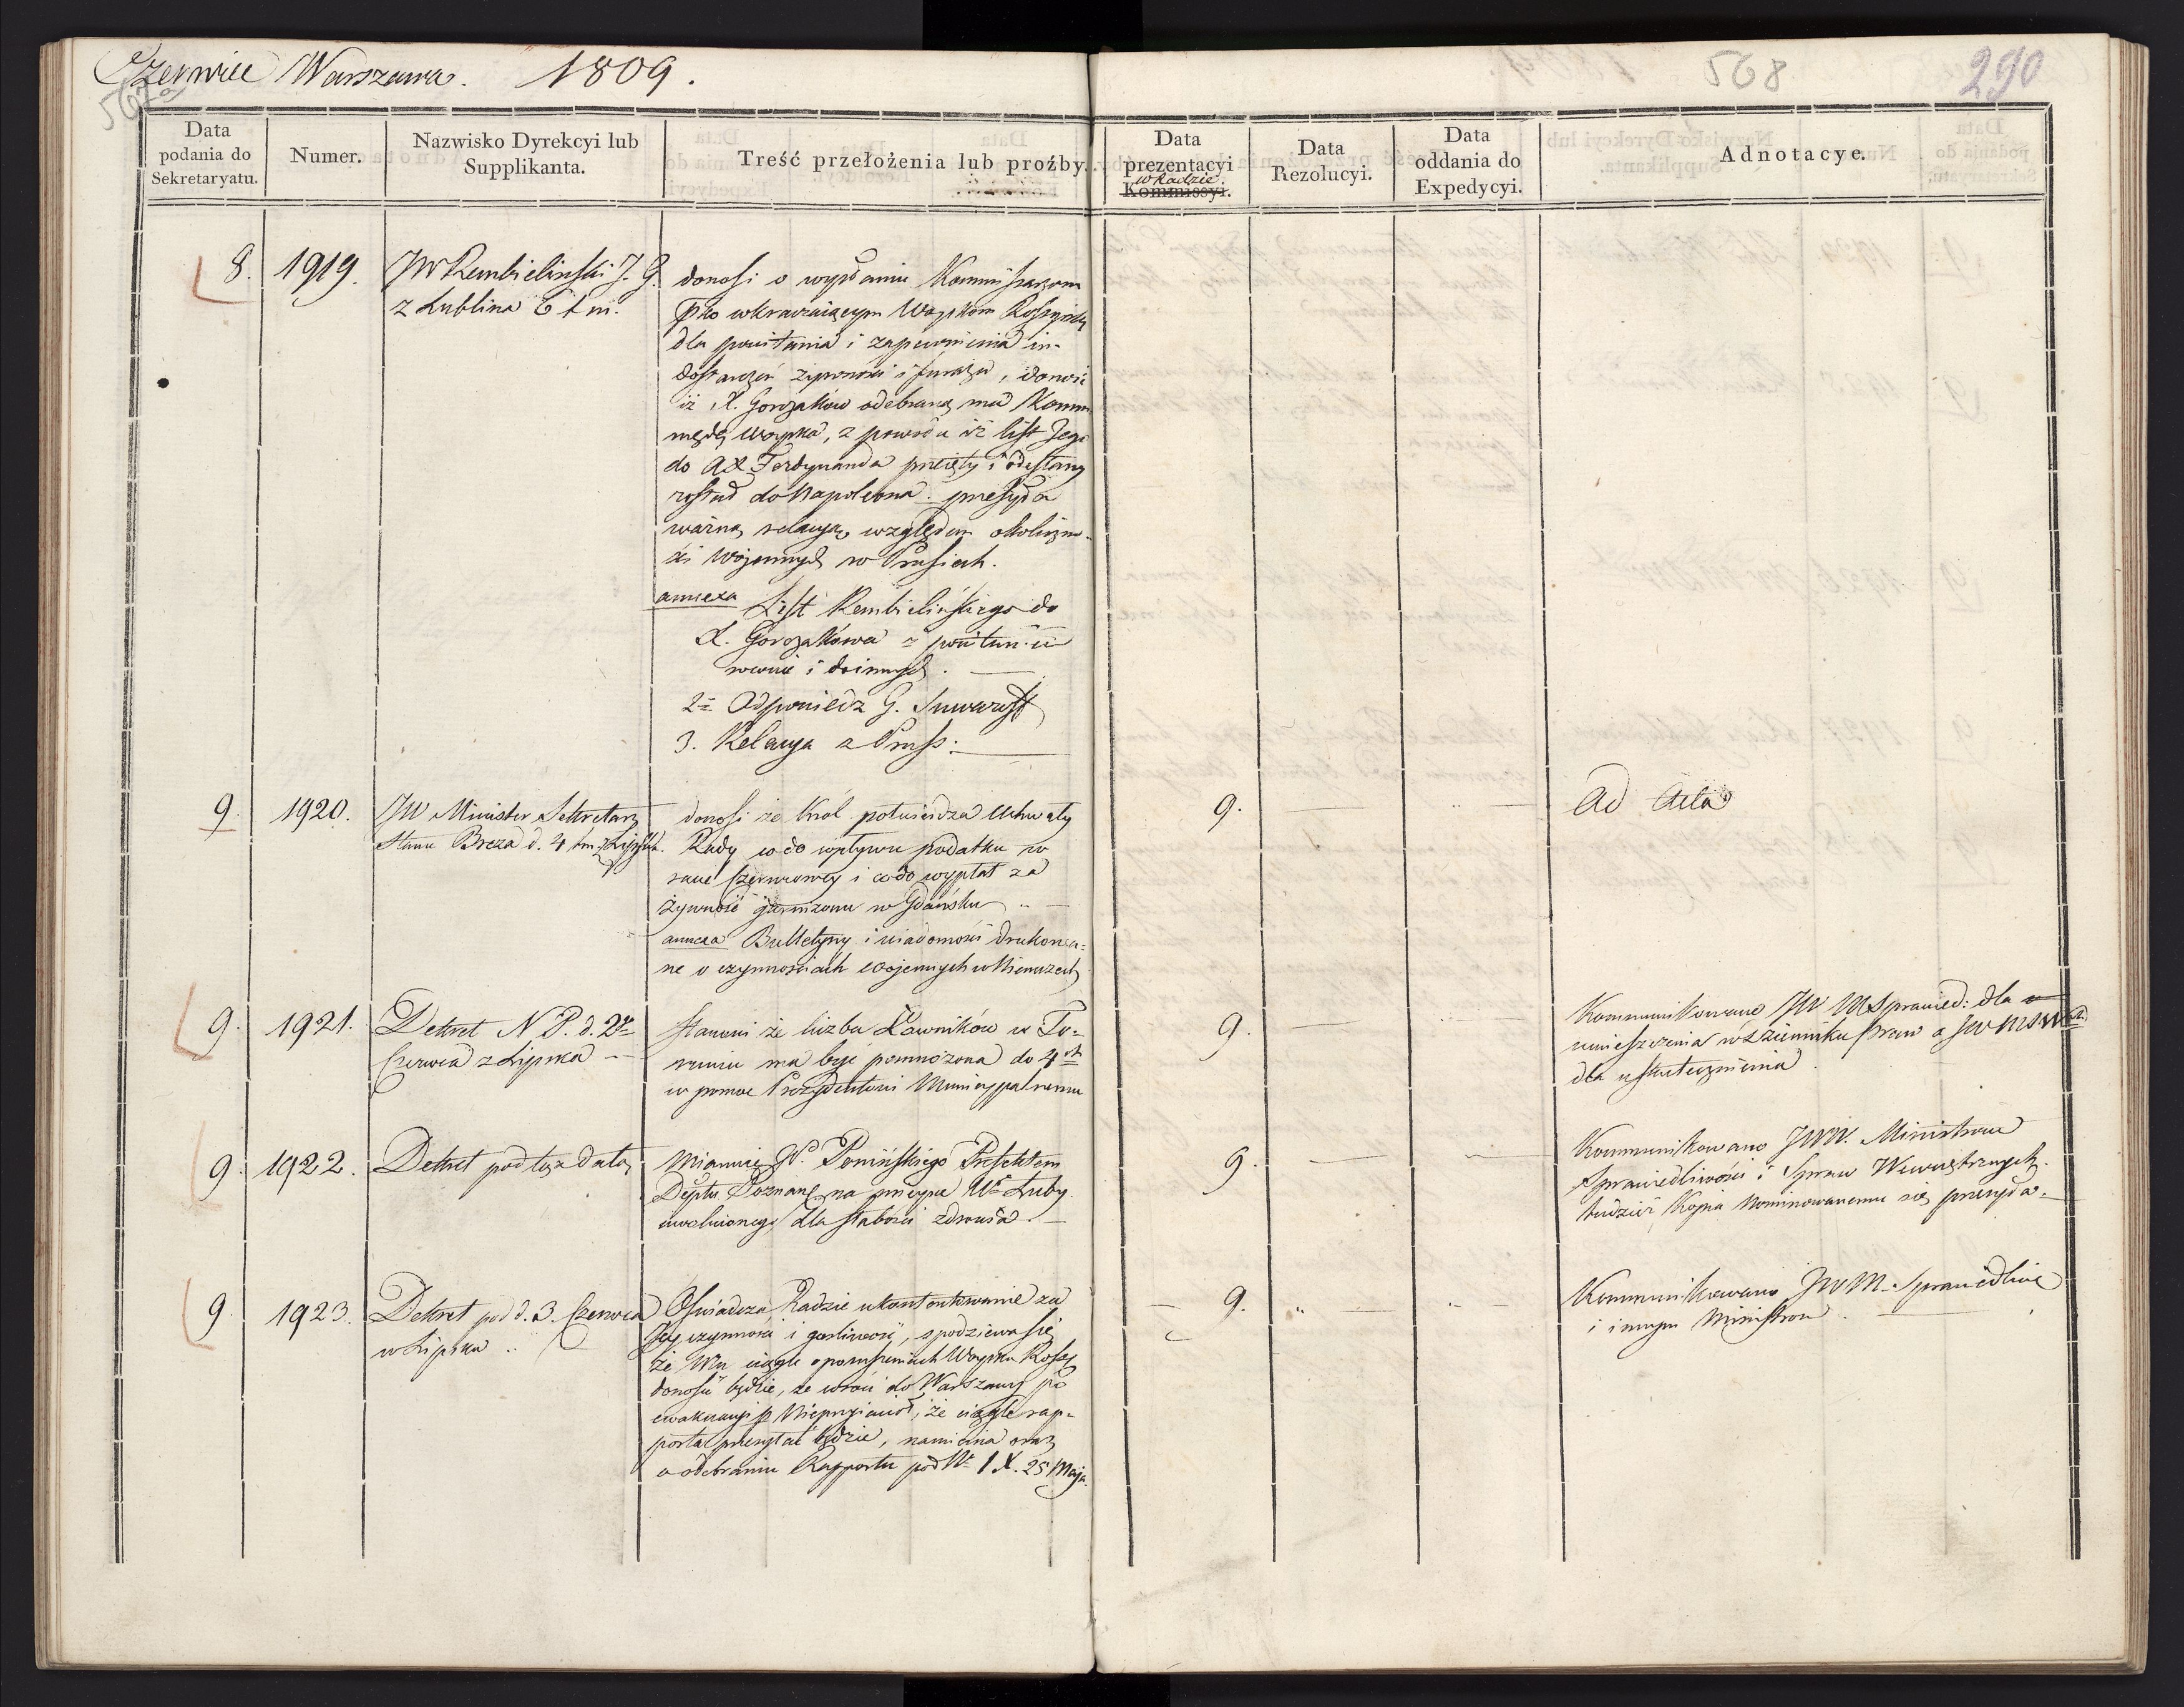 Czerwiec Warszawa. 1809.
568
290
Data podania do Sekretaryatu.
Numer.
Nazwisko Dyrekcyi lub Supplikanta.
Treść przełożenia lub proźby.
Data prezentacyi w Radzie Kommissyi.
Data Rezolucyi.
Data oddania do Expedycyi.
Adnotacye.
8. 1919. JW Rembielinski J. G.
z Lublina 6 t m.
donosi o wysłaniu Kommissarzom
pko wkraczaiącym Woyskom Rossyisk
dla powitania i zapewnienia in-
dostarczeń żywności i furażu, donosi
iż X. Gorczakow odebraną ma Komm
mędę woyska, z powodu iż list Jego
do AX Ferdynanda przeięty i odesłany
został do Napoleona. przesyła
ważną relacyą względem okoliczno-
ści wojennych w Prusiech.
annexa List Rembielińskiego do
X. Gorczakowa z powitan:
2= Odpowiedz G. Suwarow
3. Relacya z Pruss:
9. 1920. JW Minister Sekretarz
Stanu Breza d. 4 tm z Lipska.
donosi że Król potwierdza Uchwały
Rady co do wpływu podatku w
racie Czerwcowey i co do wypłat za
żywność garnizonu w Gdańsku
annexa Bulletyny i wiadomości drukowa-
ne o czynnościach wojennych w Niemczech
9.
Ad Acta
9. 1921. Dekret N. P. d. 2go
Czerwca z Lipska
stanowi że liczba Ławników w To-
runiu ma być pomnożona do 4ch
w pomoc Prezydentowi Municypalnemu
9.
Kommunikowane JW MSprawied: dla
umieszczenia w Dzienniku Praw a JW MSW
dla uskutecznienia
9. 1922. Dekret pod tąż datą
Mianuie W. Ponińskiego Prefektem
Deptu Poznań. na mieysce Wo Luby
uwolnionego dla słabości zdrowia.
9.
Kommunikowano JWW. Ministrom
Sprawiedliwości i Spraw Wewnętrznych.
tudzież Kopia Nominowanemu się przesyła.
9 1923. Dekret pod d. 3. Czerwca
w Lipsku
Oświadcza Radzie ukontentowanie za
Jey czynność i gorliwość, spodziewa się
że Mu ciągle o poruszeniach Woyska Ross
donosić będzie, że wróci do Warszawy po
ewakuacyi p Nieprzyiaciół, że ciągle rap-
porta przesyłać będzie, namienia oraz
o odebraniu Rapportu pod No 1 X. 25 Maja.
9.
Kommunikowano JW M. Sprawiedliwo
i innym Ministrom